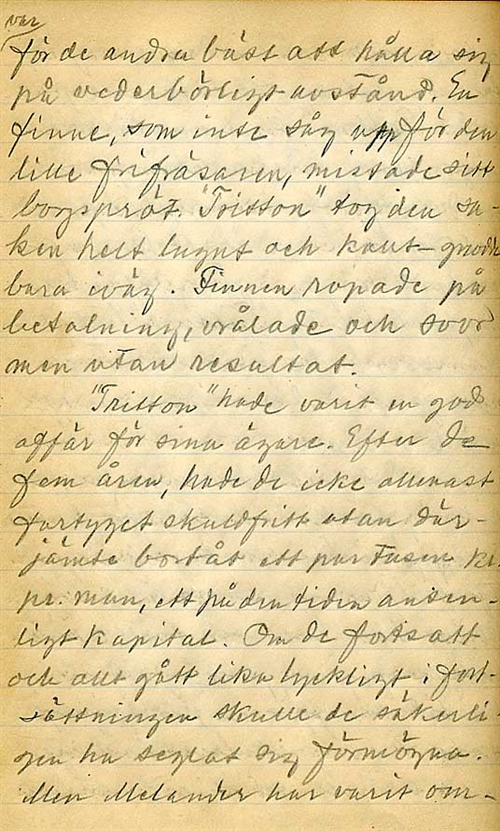 var
för de andra bäst att hålla sig
på vederbörligt avstånd. En
finne, som inte såg upp för den
lille frifräsaren, mistade sitt
borgspröt. "Tritton" tog den sa-
ken helt lugnt och
bara iväg. Finnen ropade på
betalning, vrålade och svor
men utan resultat.
"Tritton" hade varit en god
affär för sina ägare. Efter de
fem åren, hade de icke allenast
fartyget skuldfritt utan där-
jämte bortåt ett par tusen kr.
pr. man, ett på den tiden ansen-
ligt kapital. Om de fortsatt
och allt gått lika lyckligt i fort-
sättningen skulle de säkerli-
gen ha seglat sig förmögna.
Men Melander har varit om-